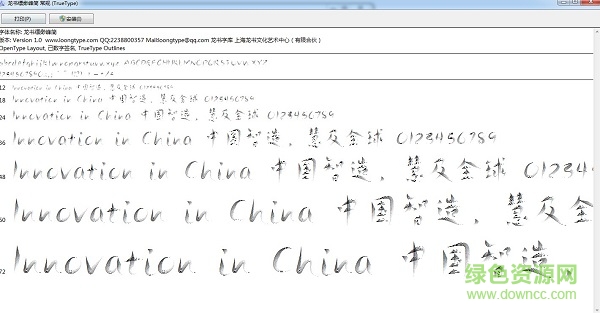 龙书缥缈峰简 常规 (TrueType)
打印(P) 安装(I)
字体名称: 龙书缥缈峰简
版本: Version 1.0 www.loongtype.com QQ:2238800357 Mail:loongtype@qq.com 龙书字库 上海龙书文化艺术中心(有限合伙)
OpenType Layout, 已数字签名, TrueType Outlines
abcdefghijklmnopqrstuvwxyz ABCDEFGHIJKLMNOPQRSTUVWXYZ
12 Innovation in China 中国智造,慧及全球 0123456789
18 Innovation in China 中国智造,慧及全球 0123456789
24 Innovation in China 中国智造,慧及全球 0123456789
36 Innovation in China 中国智造,慧及全球 0123456789
48 Innovation in China 中国智造,慧及全球 0123456789
60 Innovation in China 中国智造,慧及全
72 Innovation in China 中国智造,
绿色资源网
www.downcc.com